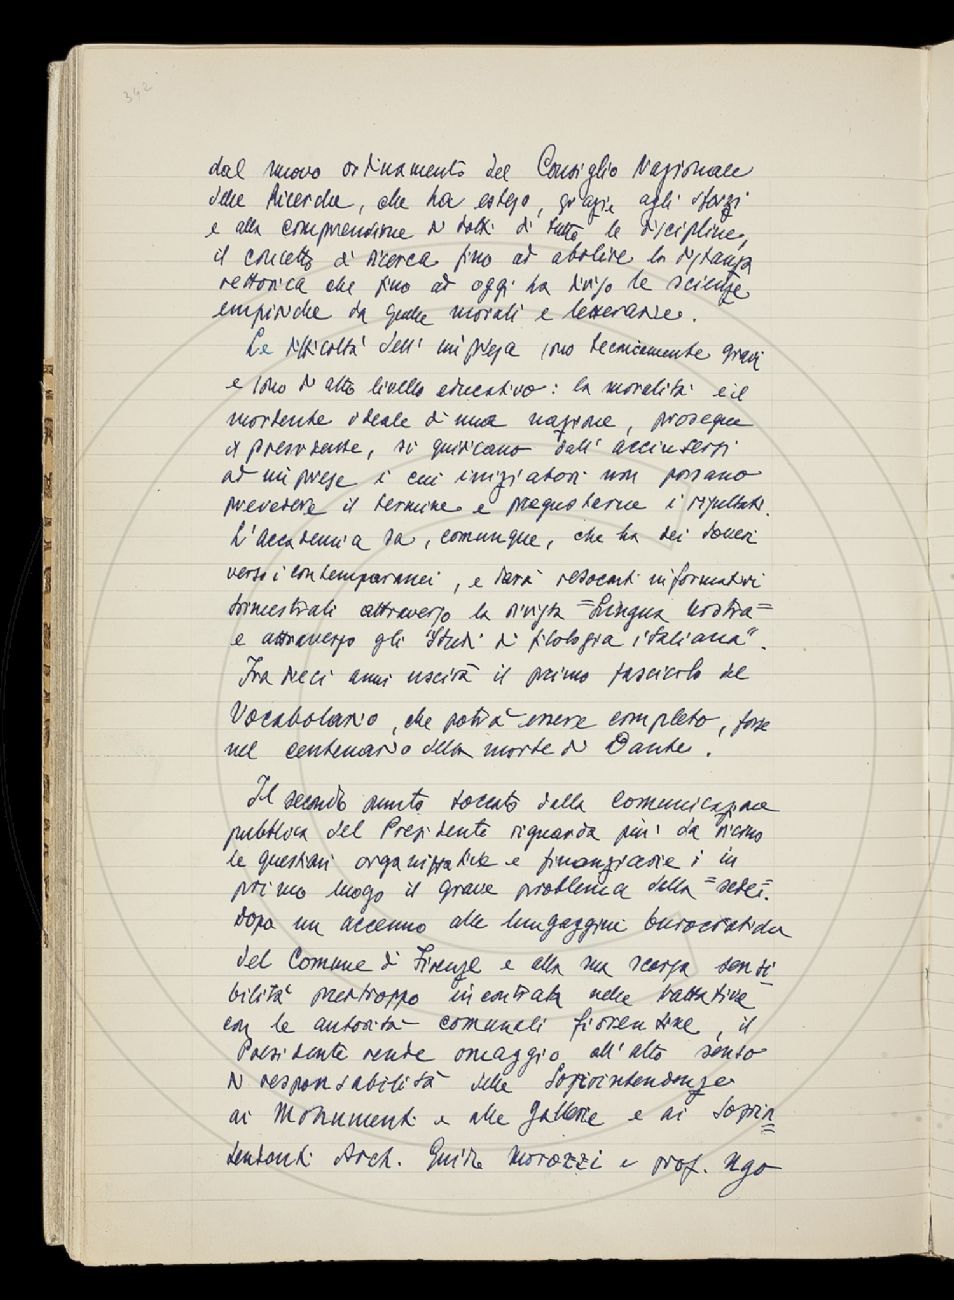 342
dal nuovo ordinamento del Consiglio Nazionale
delle Ricerche, che ha esteso, grazie agli sforzi
e alla comprensione di dotti di tutte le discipline,
il concetto di ricerca fino ad abolire la distanza
rettorica che fino ad oggi ha diviso le scienze
empiriche da quelle morali e letterarie.
Le difficoltà dell'impresa sono tecnicamente gravi
e sono di alto livello educativo: la moralità e il
mordente ideale di una nazione, prosegue
il presidente, si giudicano dall'accingersi
ad imprese i cui iniziatori non possano
prevedere il termine e pregustarne i risultati.
L'Accademia sa, comunque, che ha dei doveri
verso i contemporanei, e darà resoconti informativi
trimestrali attraverso la rivista "Lingua nostra"
e attraverso gli "Studi di filologia italiana".
Fra dieci anni uscirà il primo fascicolo del
Vocabolario, che potrà essere completo, forse
nel centenario della morte di Dante.
Il secondo punto toccato dalla comunicazione
pubblica del Presidente riguarda più da vicino
le questioni organizzative e finanziarie: in
primo luogo il grave problema della "sede".
Dopo un accenno alle lungaggini burocratiche
del Comune di Firenze e alla sua scarsa sensi-
bilità purtroppo incontrata nelle trattative
con le autorità comunali fiorentine, il
Presidente rende omaggio all'alto senso
di responsabilità delle Soprintendenze
ai Monumenti e alle Gallerie e ai Soprin=
tendenti Arch. Guido Morozzi e prof. Ugo